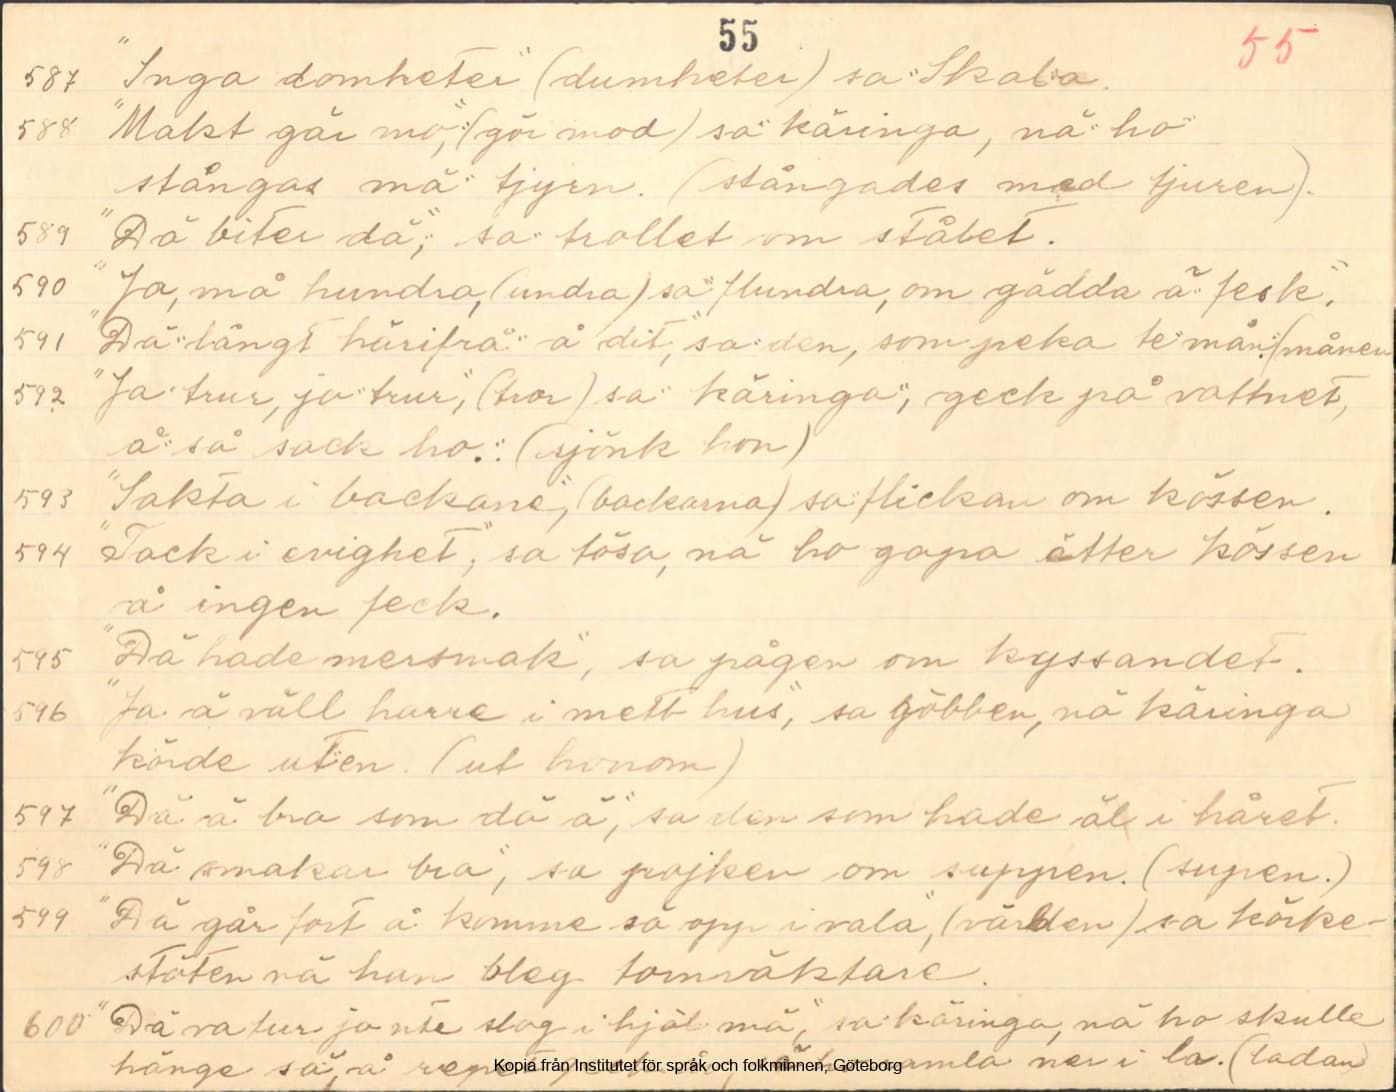 55
55
587 "Inga domheter" (dumheter) sa Skala.
588 "Makt gär mo", (gör mod) sa käringa, nä ho
stångas mä tjyrn. (stångades med tjuren).
589 "Dä biter dä", sa trollet om ståbet.
590 "Ja, må hundra, (undra) sa flundra, om gädda ä fesk".
591 "Dä långt härifrå å dit", sa den, som peka te mån. (månen
592 "Ja trur, ja trur", (tror) sa käringa, geck på vattnet,
å så sack ho. (sjönk hon)
593 "Sakta i backane", (backarna) sa flickan om kössen.
594 "Tack i evighet", sa tösa, nä ho gapa ätter kössen
å ingen feck.
595 "Dä hade mersmak", sa pågen om kyssandet.
596 "Ja ä väll harre i mett hus", sa göbben, nä käringa
körde uten. (ut honom)
597 "Dä ä bra som dä ä", sa den som hade äl i håret.
598 "Dä smakar bra", sa pojken om suppen. (supen.)
599 "Dä går fort å komme sä opp i vala", (världen) sa körke-
stöten nä han bleg tornväktare.
600 "Dä va tur ja nte slog i hjäl mä", sa käringa, nä ho skulle
hänge sä, å repet samla ner i la. (ladan)
Kopia från Institutet för språk och folkminnen, Göteborg